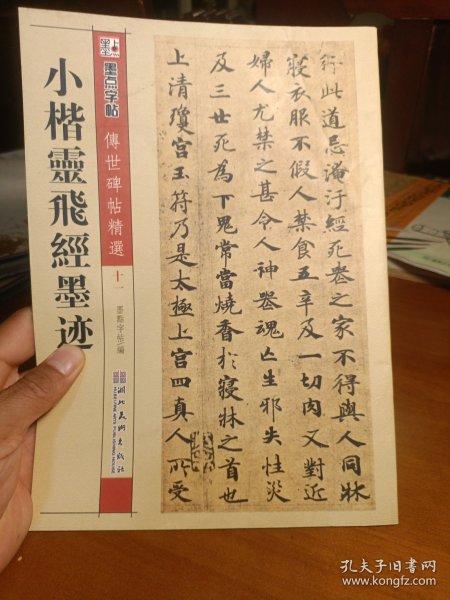 小楷靈飛經墨迹
墨点
墨点字帖
傳世碑帖精選
十一
墨點字帖/編
湖北美術出版社
行此道忌淹汙經死喪之家不得與人同牀
寢衣服不假人禁食五辛及一切肉又對近
婦人尤禁之甚令人神喪魂亡生邪失性災
及三世死為下鬼常當燒香於寢牀之首也
上清瓊宮玉符乃是太極上宮四真人所受
孔夫子旧书网
www.kongfz.com